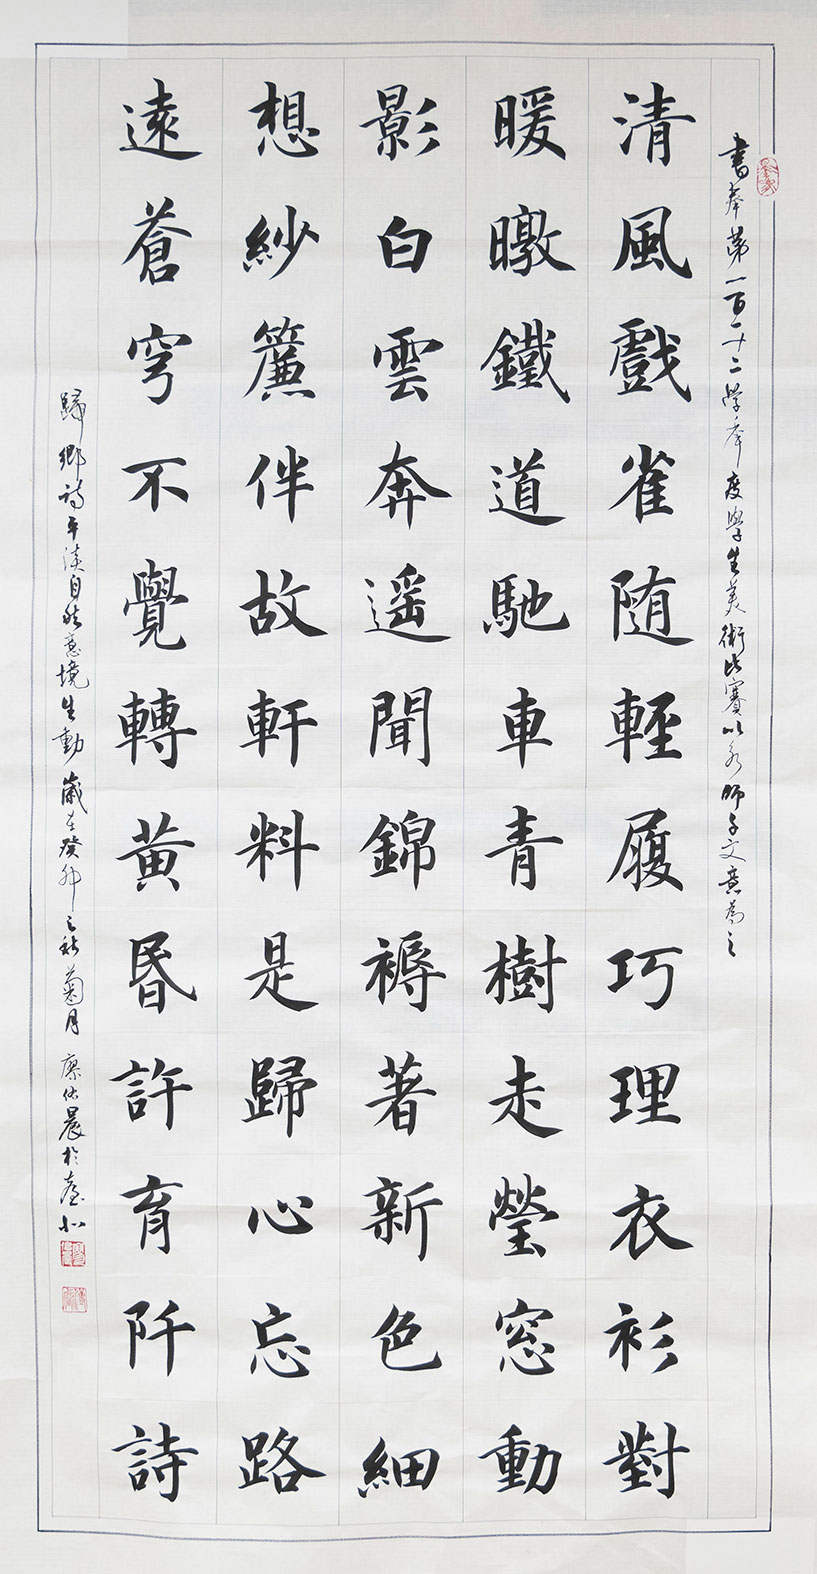 書奉第一百一十二學年度學生美術比賽以永師子文意為之
清風戲雀随輕履巧理衣衫對
暖暾鐵道馳車青樹走瑩窓動
影白雲奔遥聞錦褥著新色細
想紗簾伴故軒料是歸心忘路
遠蒼穹不覺轉黃昬許育阡詩
歸鄉詩平淡自然意境生動歲在癸卯之秋菊月廖佑晨於臺北